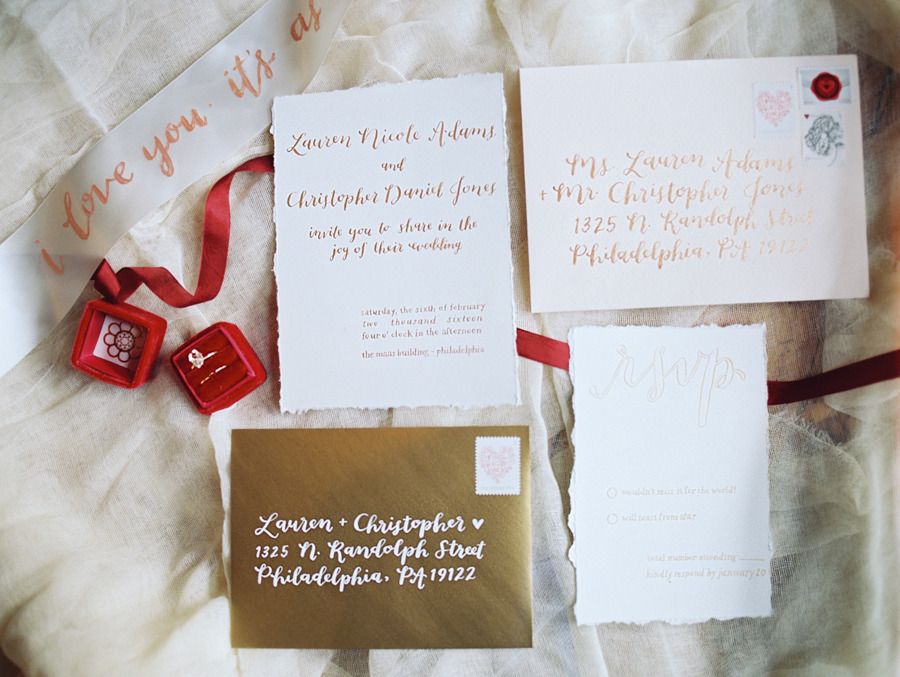 i love you. it's as
Lauren Nicole Adams
and
Christopher Daniel Jones
invite you to share in the
joy of their wedding
saturday, the sixth of february
two thousand sixteen
four o' clock in the afternoon
the maas building - philadelphia
Ms. Lauren Adams
+ Mr. Christopher Jones
1325 N. Randolph Street
Philadelphia, PA 19122
Lauren + Christopher ♥
1325 N. Randolph Street
Philadelphia, PA 19122
rsvp.
wouldn't miss it for the world!
will toast from afar
total number attending ____
kindly respond by january 10